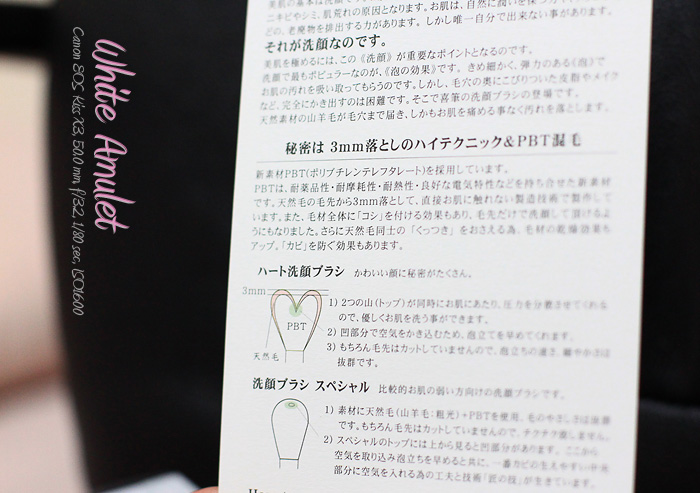 White Amulet
Canon EOS Kiss X3, 50.0 mm, f/3.2, 1/80 sec, ISO1600
ニキビやシミ、肌荒れの原因となります。お肌は、自然に潤いを保つ
どの、老廃物を排出する力があります。しかし唯一自分で出来ない事があります。
それが洗顔なのです。
美肌を極めるには、この《洗顔》が重要なポイントとなるのです。
洗顔で最もポピュラーなのが、《泡の効果》です。きめ細かく、弾力のある《泡》で
お肌の汚れを吸い取ってもらうのです。しかし、毛穴の奥にこびりついた皮脂やメイク
など、完全にかき出すのは困難です。そこで喜筆の洗顔ブラシの登場です。
天然素材の山羊毛が毛穴まで届き、しかもお肌を痛める事なく汚れを落とします。
秘密は 3mm落としのハイテクニック&PBT混毛
新素材PBT(ポリブチレンテレフタレート)を採用しています。
PBTは、耐薬品性・耐摩耗性・耐熱性・良好な電気特性などを持ち合せた新素材
です。天然毛の毛先から3mm落として、直接お肌に触れない製造技術で製作して
います。また、毛材全体に「コシ」を付ける効果もあり、毛先だけで洗顔して頂けるよ
うにもなりました。さらに天然毛同士の「くっつき」をおさえる為、毛材の乾燥効果も
アップ。「カビ」を防ぐ効果もあります。
ハート洗顔ブラシ かわいい顔に秘密がたくさん。
3mm
PBT
天然毛
1) 2つの山(トップ)が同時にお肌にあたり、圧力を分散させてくれな
ので、優しくお肌を洗う事ができます。
2) 凹部分で空気をかき込むため、泡立てを早めてくれます。
3) もちろん毛先はカットしていませんので、泡立ちの速さ、細やかさは
抜群です。
洗顔ブラシ スペシャル 比較的お肌の弱い方向けの洗顔ブラシです。
1) 素材に天然毛(山羊毛:粗光)+PBTを使用、毛のやさしさは抜群
です。もちろん毛先はカットしていませんので、チクチク感しません。
2) スペシャルのトップには上から見ると凹部分があります。ここから
空気を取り込み泡立ちを早めると共に、一番カビの生えやすい中央
部分に空気を入れる為の工夫と技術「匠の技」が生きています。